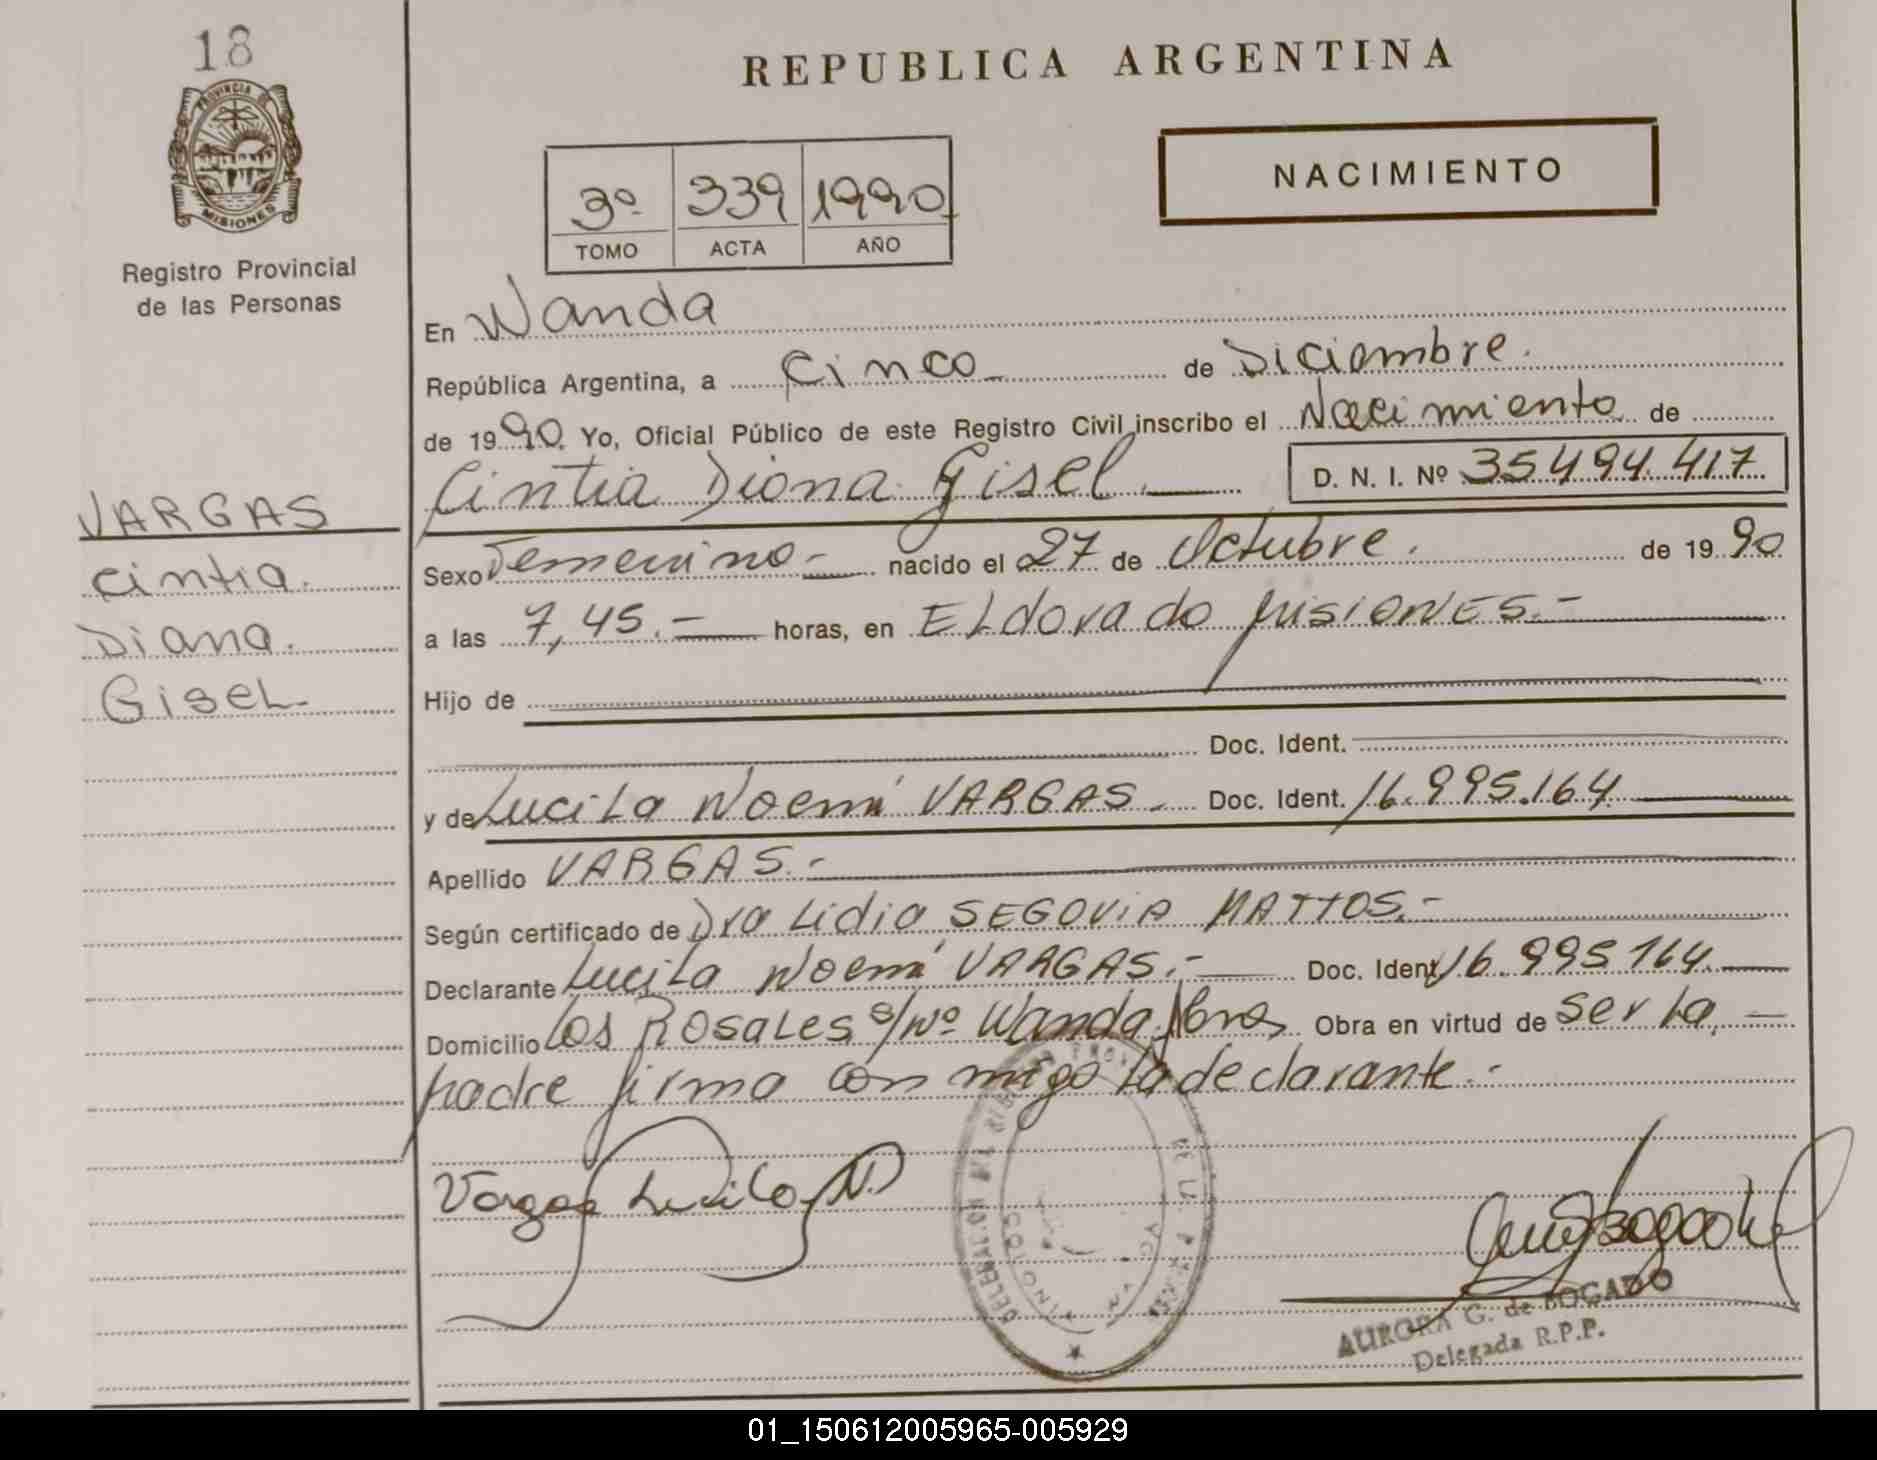 18
PROVINCIA DE
MISIONES
Registro Provincial
de las Personas
VARGAS
Cintia.
Diana.
Gisel
REPUBLICA ARGENTINA
NACIMIENTO
3º 339 1990
TOMO ACTA AÑO
En Wanda
República Argentina, a Cinco de Diciembre.
de 1990. Yo, Oficial Público de este Registro Civil inscribo el Nacimiento de
Cintia Diana Gisel. D. N. I. Nº 35494.417
Sexo Femenino- nacido el 27 de Octubre. de 1990
a las 7,45.- horas, en ELdorado MISIONES.-
Hijo de
Doc. Ident.
y de LuciLa Noemí VARGAS. Doc. Ident. 16.995.164
Apellido VARGAS.-
Según certificado de Dra Lidia SEGOVIA MATTOS.-
Declarante LuciLa Noemí VARGAS.- Doc. Ident 16.995 164.
Domicilio Los ROSALES s/Nº Wanda Mnes Obra en virtud de ser la.
madre firma con migo la declarante.-
Vargas Lucila N.
AURORA G. de BOGADO
Delegada R.P.P.
01_150612005965-005929